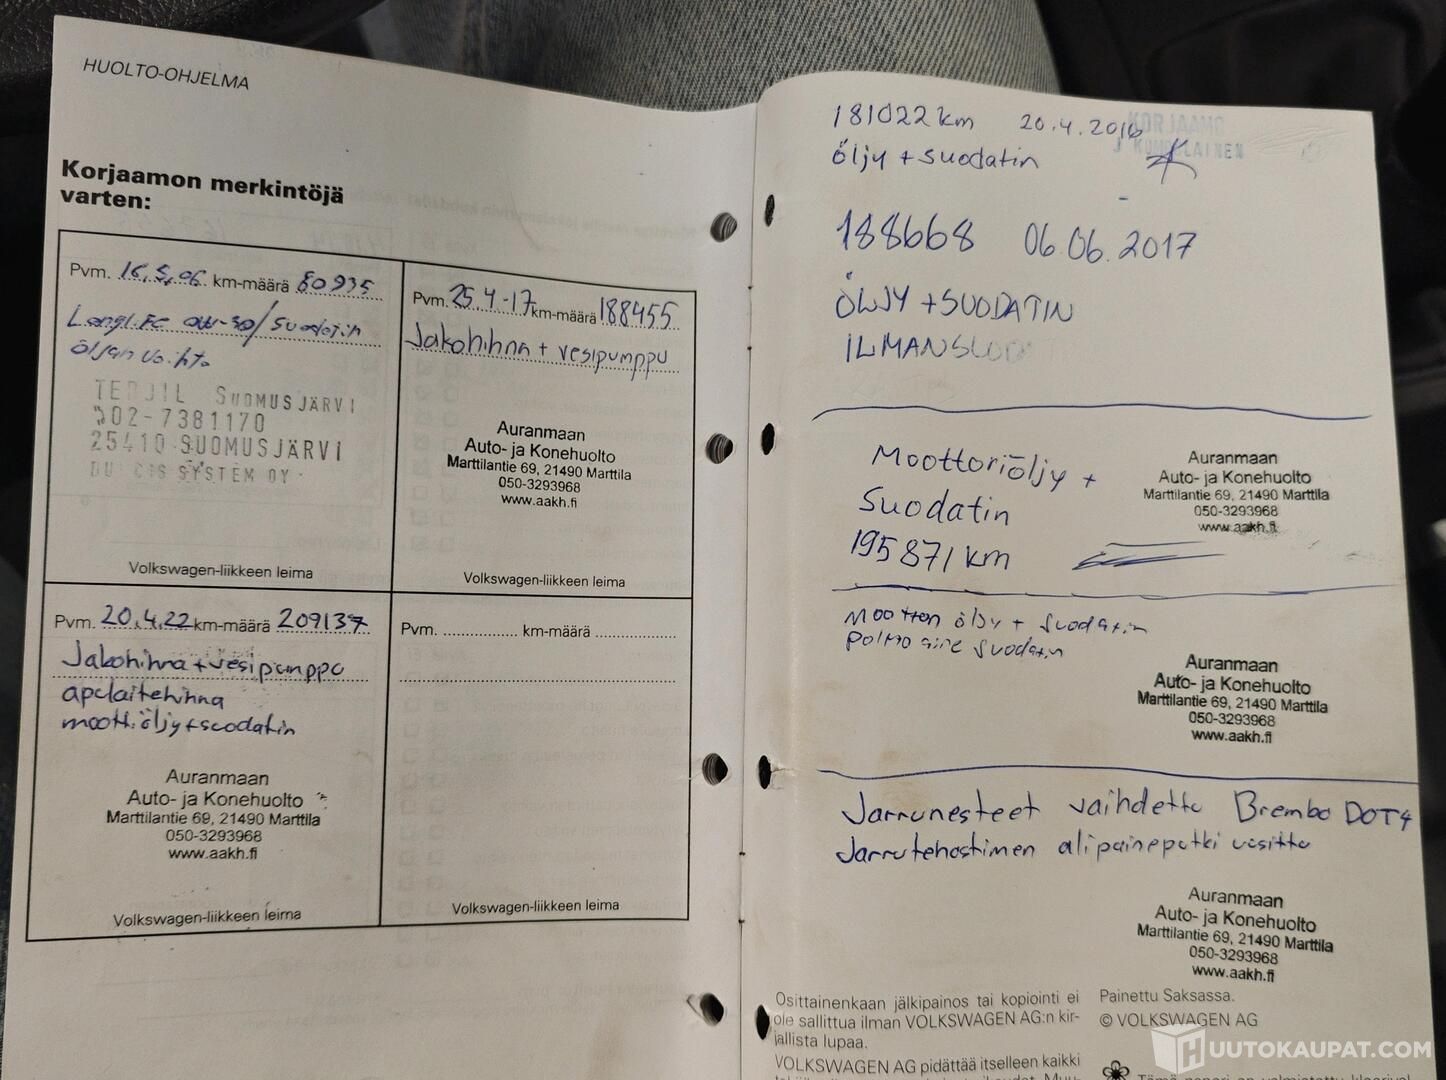 HUOLTO-OHJELMA
Korjaamon merkintöjä
varten:
Pvm. 16.5.06. km-määrä 80935
LongLife 0W-30/suodatin
öljyn vaihto
SUOMUSJÄRVI
02-7381170
25410 SUOMUSJÄRVI
SYSTEM OY
Volkswagen-liikkeen leima
Pvm. 25.4-17 km-määrä 188455
Jakohihna + vesipumppu
Auranmaan
Auto- ja Konehuolto
Marttilantie 69, 21490 Marttila
050-3293968
www.aakh.fi
Volkswagen-liikkeen leima
Pvm. 20.4.22 km-määrä 209137
Jakohihna + vesipumppu
apulaitehihna
moottiöljy+suodatin
Auranmaan
Auto- ja Konehuolto
Marttilantie 69, 21490 Marttila
050-3293968
www.aakh.fi
Volkswagen-liikkeen leima
Pvm. .................. km-määrä ...................
Volkswagen-liikkeen leima
181022 km 20.4.2016
öljy + suodatin
KORJAAMO
188668 06.06.2017
ÖLJY + SUODATIN
ILMANSUOD
Moottoriöljy +
Suodatin
195871 km
Auranmaan
Auto- ja Konehuolto
Marttilantie 69, 21490 Marttila
050-3293968
www.aakh.fi
Moottori öljy + suodatin
Polttoaine suodatin
Auranmaan
Auto- ja Konehuolto
Marttilantie 69, 21490 Marttila
050-3293968
www.aakh.fi
Jarrunesteet vaihdettu Brembo DOT4
Jarrutehostimen alipaineputki uusittu
Auranmaan
Auto- ja Konehuolto
Marttilantie 69, 21490 Marttila
050-3293968
www.aakh.fi
Osittainenkaan jälkipainos tai kopiointi ei
ole sallittua ilman VOLKSWAGEN AG:n kir-
jallista lupaa.
VOLKSWAGEN AG pidättää itselleen kaikki
Painettu Saksassa.
© VOLKSWAGEN AG
HUUTOKAUPAT.COM